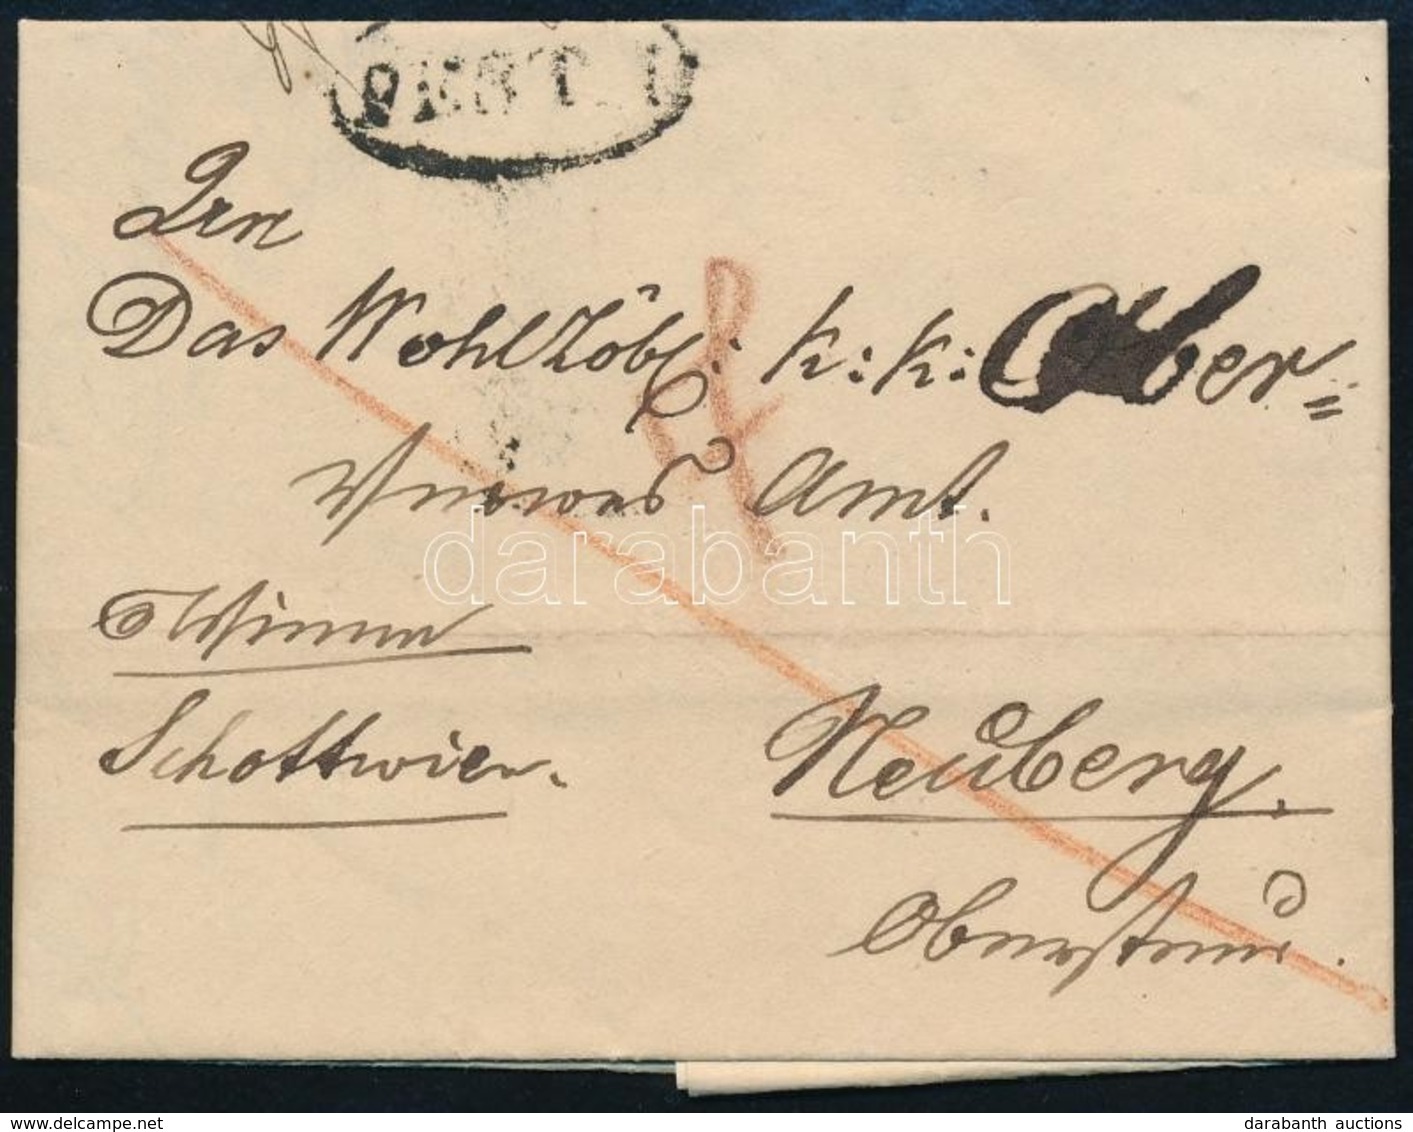 PEST. I
Das Wohllöbl: K: K: Ober=
Verwes Amt.
Schottwien.
Neuberg.
Obersteier.
darabanth
www.delcampe.net
darabanth auctions